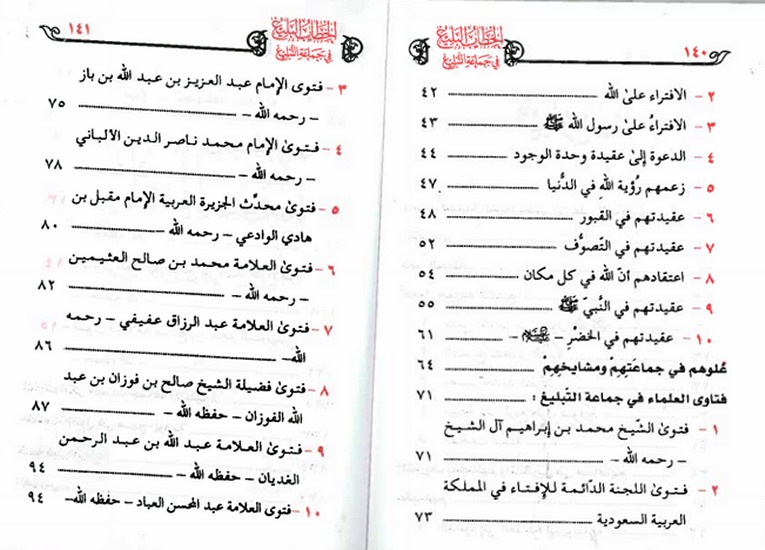 ١٤٠
الخطاب البليغ
في جماعة التبليغ
٢ - الافتراء على الله ٤٢
٣ - الافتراءُ علىٰ رسول الله ﷺ ٤٣
٤ - الدعوة إلىٰ عقيدة وحدة الوجود ٤٤
٥ - زعمهم رُؤية اللهِ في الدُّنيا ٤٧
٦ - عقيدتهم في القبور ٤٨
٧ - عقيدتهم في التّصوُّف ٥٢
٨ - اعتقادهم أنّ الله في كل مكان ٥٤
٩ - عقيدتهم في النَّبيّ ﷺ ٥٥
١٠ - عقيدتهم في الخضْرِ - - ٦١
غُلوهم في جماعَتِهِمْ ومشايخِهِمْ ٦٤
فتاوى العلماء في جماعة التّبليغ : ٧١
١ - فتوىٰ الشّيخ محمد بن إبراهيم آل الشيخ
- رحمه الله - ٧١
٢ - فتوىٰ اللجنة الدّائمة للإفتاء في المملكة
العربية السعودية ٧٣
١٤١
الخطاب البليغ
في جماعة التبليغ
٣ - فتوى الإمام عبد العزيز بن عبد الله بن باز
- رحمه الله - ٧٥
٤ - فتوىٰ الإمام محمد ناصر الدين الألباني
- رحمه الله - ٧٨
٥ - فتوىٰ محدِّث الجزيرة العربية الإمام مقبل بن
هادي الوادعي - رحمه الله - ٨٠
٦ - فتوىٰ العلامة محمد بن صالح العثيمين
- رحمه الله - ٨٢
٧ - فتوىٰ العلامة عبد الرزاق عفيفي - رحمه
الله - ٨٦
٨ - فتوىٰ فضيلة الشيخ صالح بن فوزان بن عبد
الله الفوزان - حفظه الله - ٨٧
٩ - فتوىٰ العلامة عبد الله بن عبد الرحمن
الغديان - حفظه الله - ٩٤
١٠ - فتوى العلامة عبد المحسن العباد - حفظه الله - ٩٤